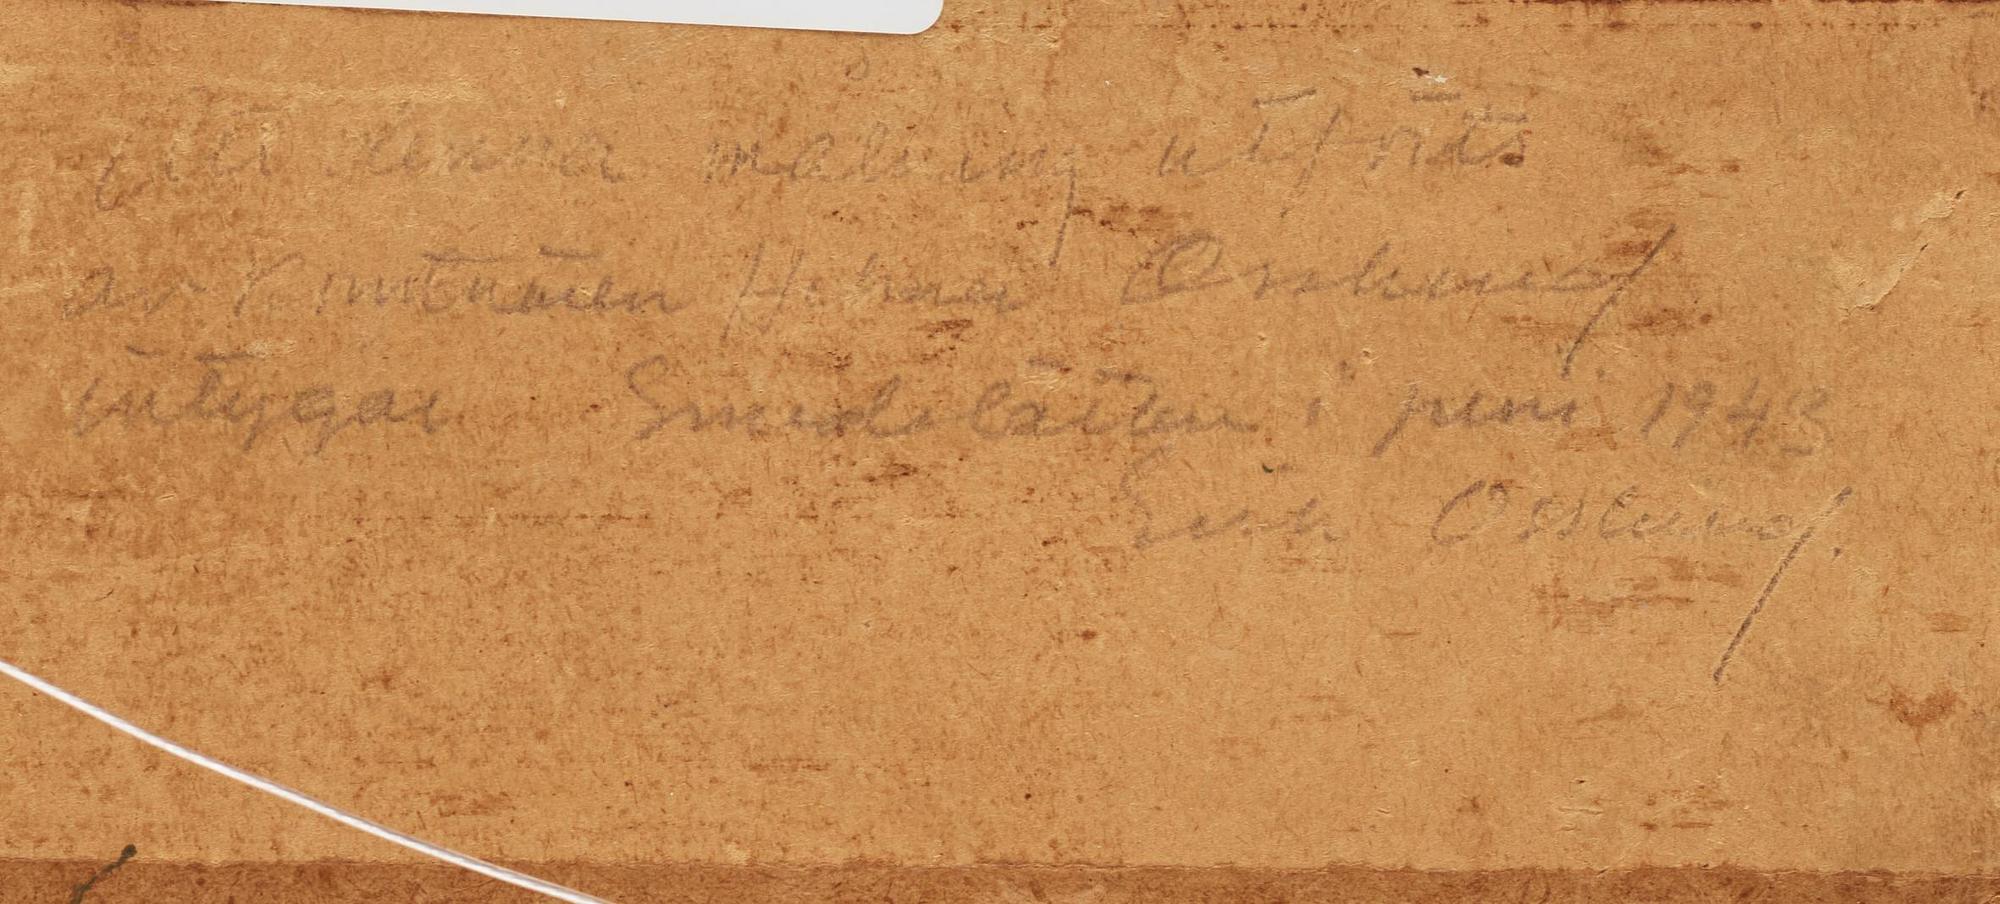 Att denna målning utförts
av Konstnären Helmer Osslund
intygar Smedslätten i juni 1943
Erik Osslund.